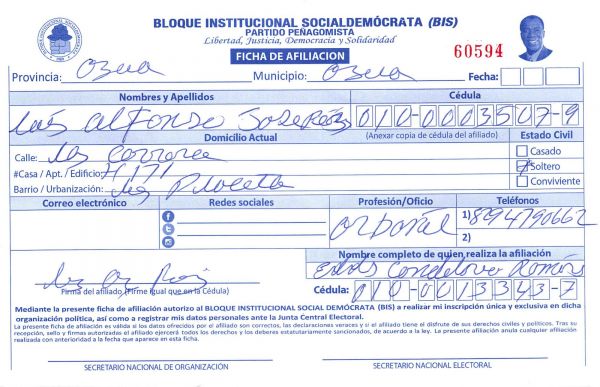 BLOQUE INSTITUCIONAL SOCIALDEMÓCRATA (BIS)
PARTIDO PEÑAGOMISTA
Libertad, Justicia, Democracia y Solidaridad
FICHA DE AFILIACION
60594
Provincia: Azua Municipio: Azua Fecha:
Nombres y Apellidos Cédula
Luis Alfonso 010-0003507-9
Domicilio Actual (Anexar copia de cédula del afiliado) Estado Civil
Calle: Casado
#Casa / Apt. / Edificio: # 171 Soltero
Barrio / Urbanización: Conviviente
Correo electrónico Redes sociales Profesión/Oficio Teléfonos
1) 8294790662
2)
Nombre completo de quien realiza la afiliación
Candelario Román
Firma del afiliado (Firme igual que en la Cédula) Cédula: 010-0013343-7
Mediante la presente ficha de afiliación autorizo al BLOQUE INSTITUCIONAL SOCIAL DEMÓCRATA (BIS) a realizar mi inscripción única y exclusiva en dicha
organización política, así como a registrar mis datos personales ante la Junta Central Electoral.
La presente ficha de afiliación es válida si los datos ofrecidos por el afiliado son correctos, las declaraciones veraces y si el afiliado tiene el disfrute de sus derechos civiles y políticos. Tras su
recepción, sello y firmas autorizadas el afiliado ejercerá todos los derechos y los deberes estatutariamente sancionados, de acuerdo a la ley. La presente afiliación anula cualquier afiliación
realizada con anterioridad a la fecha que aparece en esta ficha.
SECRETARIO NACIONAL DE ORGANIZACIÓN SECRETARIO NACIONAL ELECTORAL